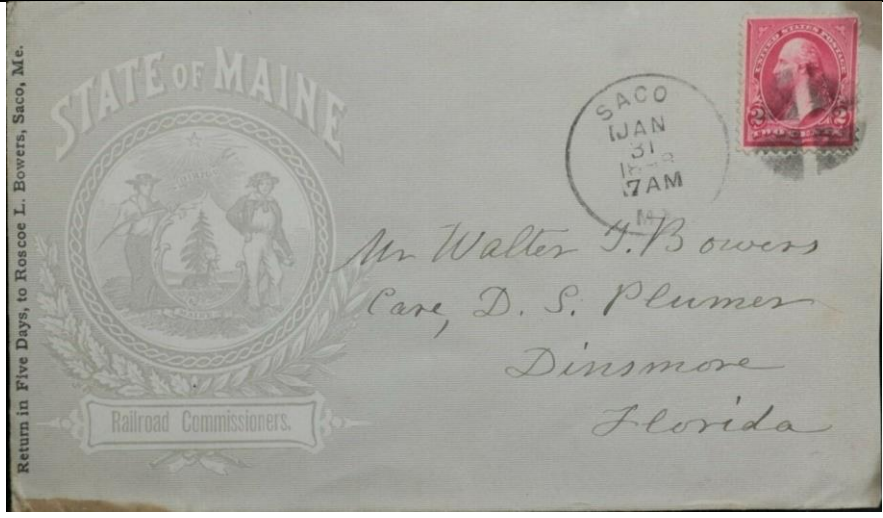 Return in Five Days, to Roscoe L. Bowers, Saco, Me.
STATE OF MAINE
Railroad Commissioners.
SACO
JAN
31
7AM
UNITED STATES POSTAGE
2 2
Mr Walter T. Bowers
Care, D. S. Plumer
Dinsmore
Florida